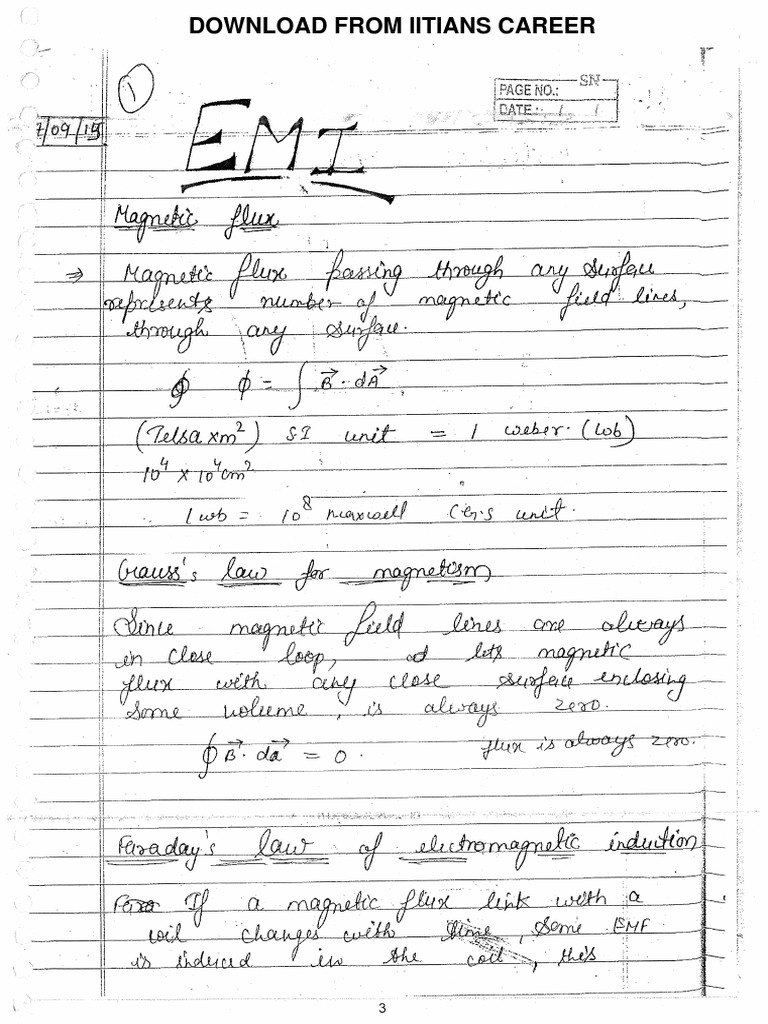 DOWNLOAD FROM IITIANS CAREER
1
SN
PAGE NO.:
DATE: / /
7/09/19
EMI
Magnetic flux
⇒ Magnetic flux passing through any surface
represents number of magnetic field lines,
through any surface.
ϕ ϕ = ∫ B⃗ · dA⃗
(Telsa × m²) SI unit = 1 weber. (wb)
10⁴ × 10⁴cm²
1 wb = 10⁸ maxwell C.G.S unit.
Gauss's law for magnetism
Since magnetic field lines are always
in close loop, magnetic
flux with any close surface enclosing
some volume, is always zero.
∮ B⃗ · da⃗ = 0. flux is always zero.
Faraday's law of electromagnetic induction
If a magnetic flux link with a
coil changes with time, some EMF
is induced in the coil, this
3